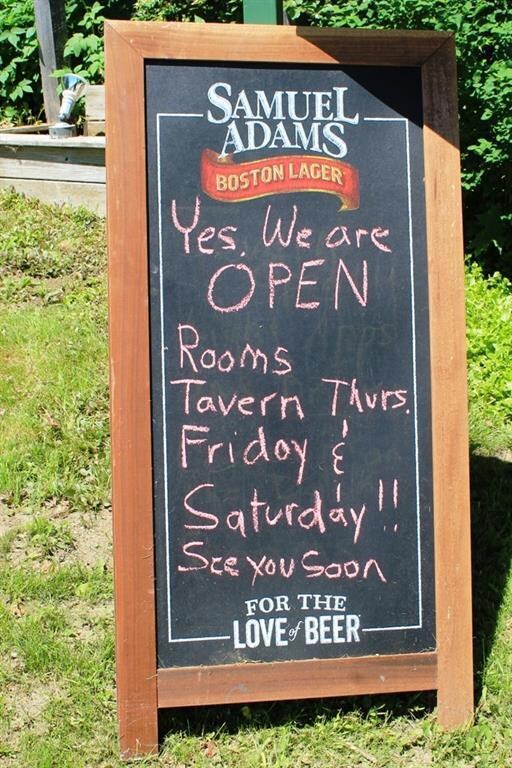 SAMUEL
ADAMS
BOSTON LAGER
Yes, We are
OPEN
Rooms
Tavern Thurs.
Friday &
Saturday!!
See you Soon
FOR THE
LOVE of BEER